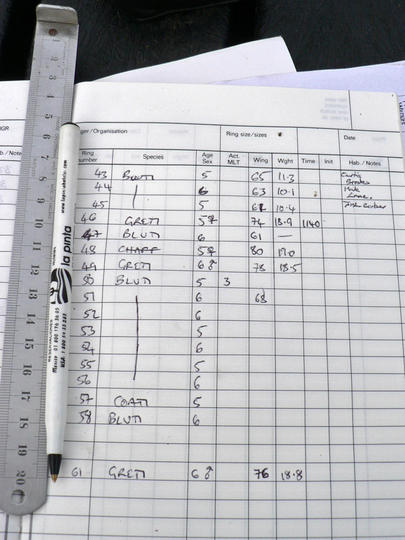 Ring size/sizes
Date
Ring number Species Age Sex Act. MLT Wing Wght Time Init Hab./Notes
43 BLUTI 5 65 11.3
44 | 6 63 10.1
45 | 5 10.4
46 GRETI 5♀ 74 18.9 1140
47 BLUTI 6 61 —
48 CHAFF 5♀ 80
49 GRETI 6♂ 78 18.5
50 BLUTI 5 3
51 6 68
52 6
53 5
54 6
55 5
56 6
57 COATI 5
58 BLUTI 6
61 GRETI 6♂ 76 18.8
la pinta